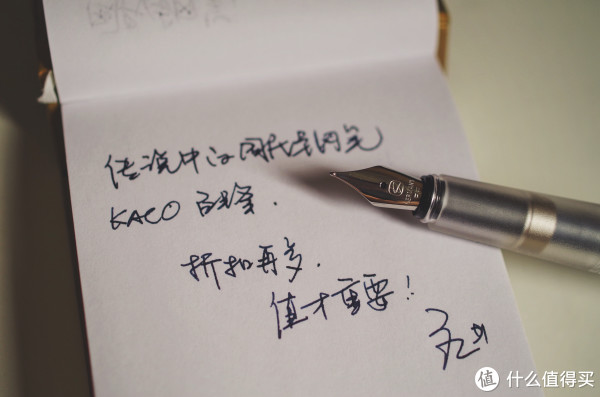 传说中的 钢笔
KACO 百锋.
折扣再多,
值才重要!
值 什么值得买